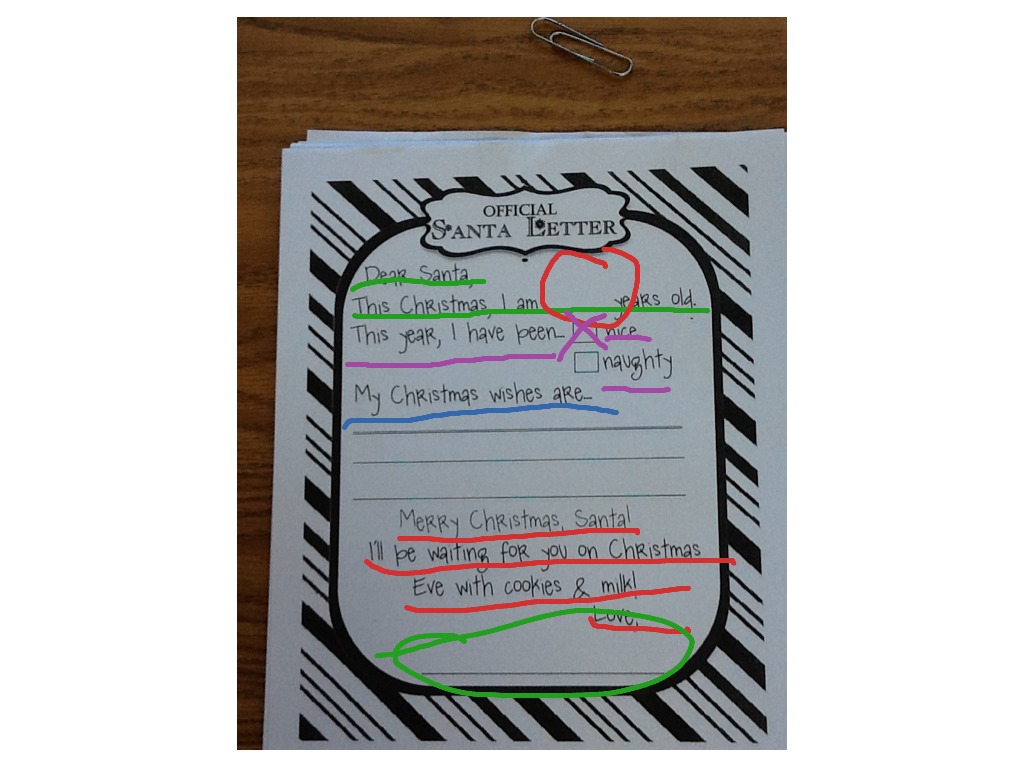 OFFICIAL
SANTA LETTER
Dear Santa,
This Christmas, I am years old.
This year, I have been... nice
naughty
My Christmas wishes are...
Merry Christmas, Santa!
I'll be waiting for you on Christmas
Eve with cookies & milk!
Love,